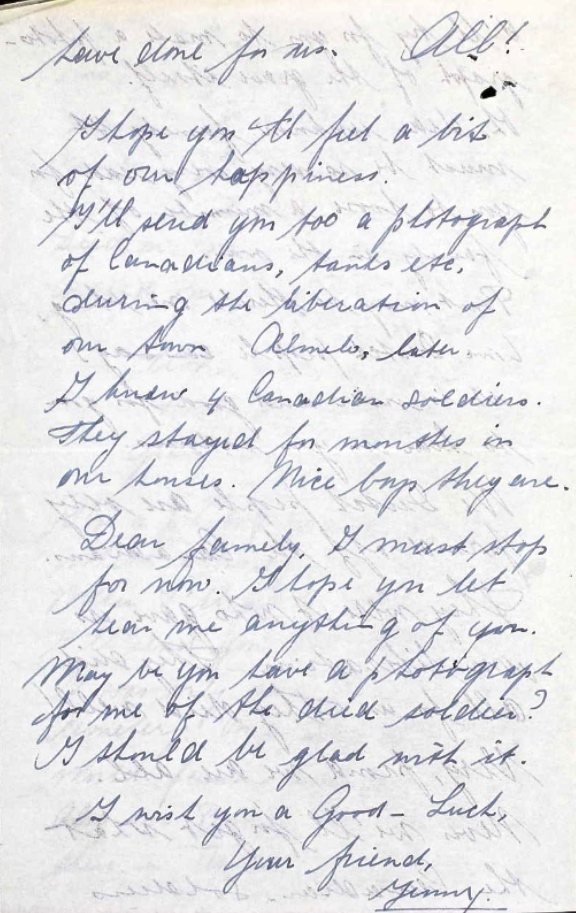 have done for us. All!
I hope you 'll feel a bit
of our happiness.
I'll send you too a photograph
of Canadians, tanks etc.
during the liberation of
our town Almelo, later
I knew 4 Canadian soldiers.
They stayed for months in
our houses. Nice boys they are.
Dear family, I must stop
for now. I hope you let
hear me anything of you.
May be you have a photograph
for me of the died soldier?
I should be glad with it.
I wish you a Good-Luck,
Your friend,